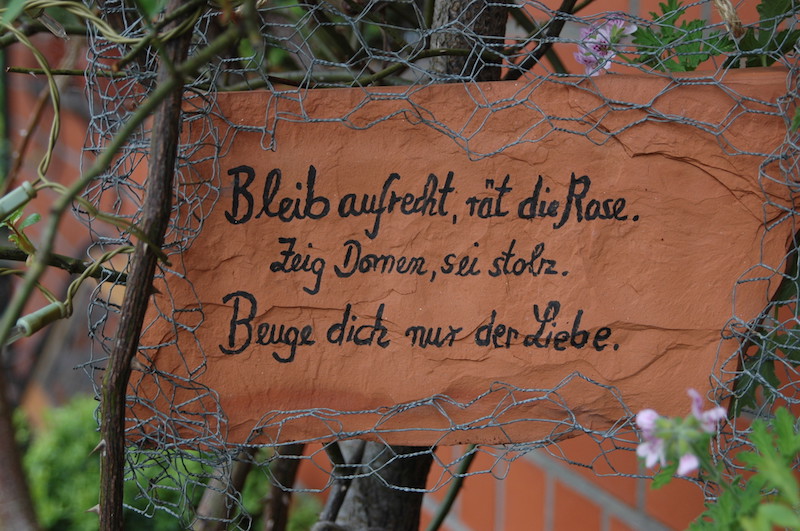 Bleib aufrecht, rät die Rose.
Zeig Dornen, sei stolz.
Beuge dich nur der Liebe.